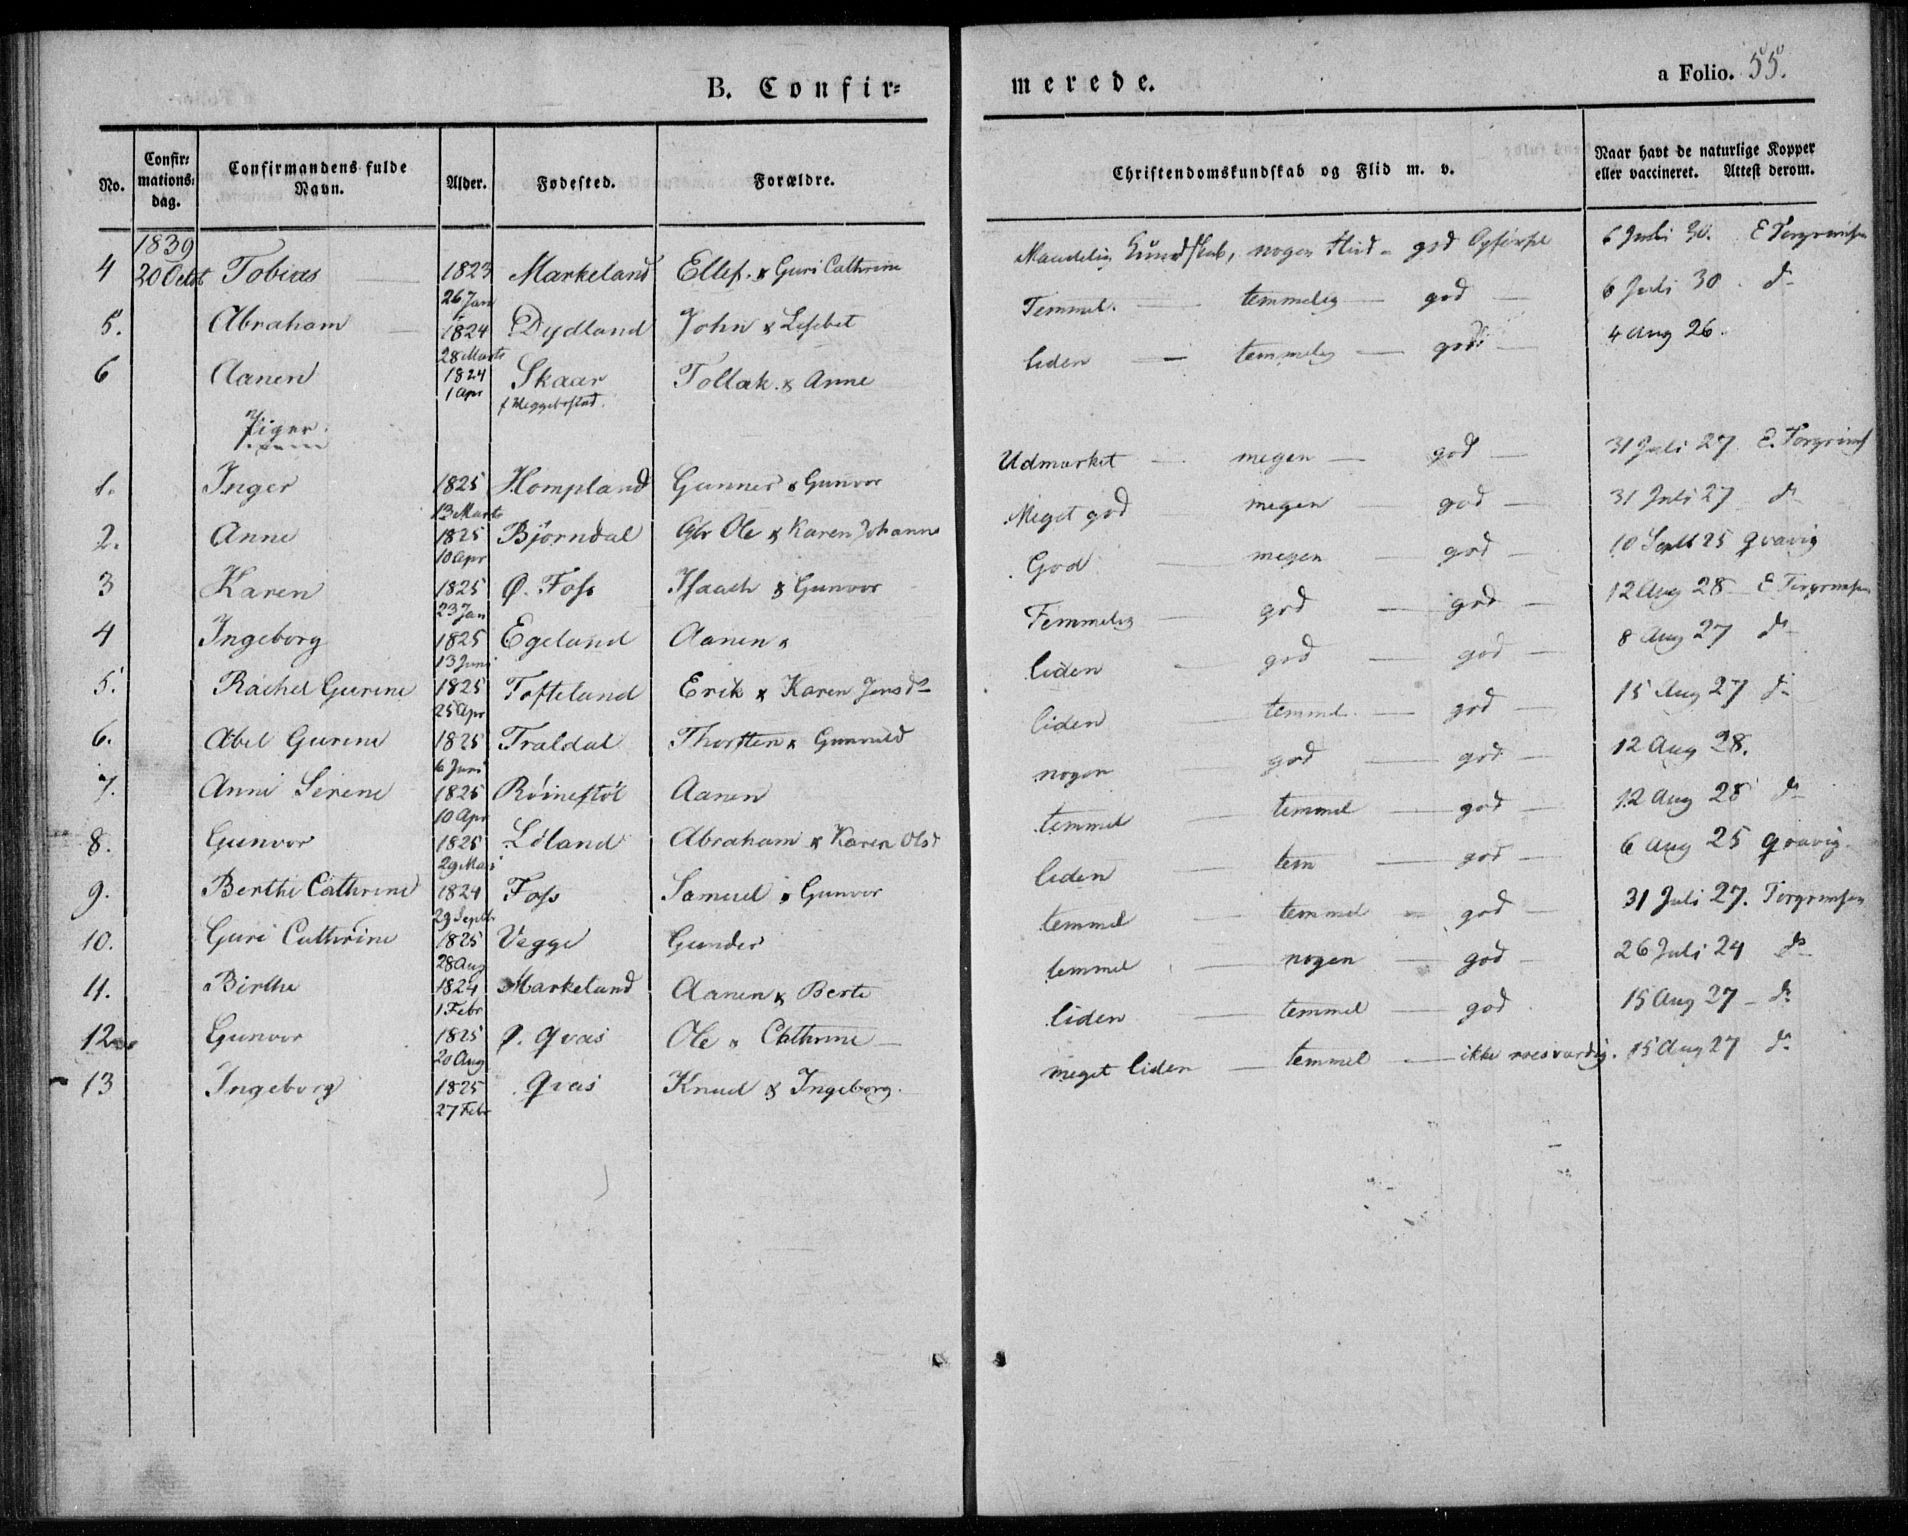 B. Confir=
merede.
a Folio. 55.
No. Confir=mations=dag. Confirmandens fulde Navn. Alder. Fødested. Forældre. Christendomskundskab og Flid m. v. Naar havt de naturlige Kopper eller vaccineret. Attest derom.
1839
4 20 Octbr Tobias 1823 26 Jan Markeland Ellef & Guri Cathrine Maadelig Kundskab, nogen Flid - god Opførsel 6 Juli 30. E Torgrimsen
5. Abraham 1824 28 Marts Dydland John & Lisebet Temmel. — temmelig — god — 6 Juli 30. do
6 Aanen 1824 1 Apr Skaar f Meggebostad. Tollak & Anne liden — temmelig — god — 4 Aug 26.
Piger.
1. Inger 1825 13 Marts Hompland Gunner & Gunvor Udmærket — megen — god — 31 Juli 27 E. Torgrims
2. Anne 1825 10 Apr Bjørndal Ole & Karen Johanne Meget god megen — god — 31 Juli 27 do
3 Karen 1825 23 Jan Ø. Foss Isaach & Gunvor God megen — god — 10 Septb 25 Qvavig
4 Ingeborg 1825 13 Juni Egeland Aanen & Temmelig — god — god — 12 Aug 28 E Torgrimsen
5. Rachel Gurine 1825 25 Apr Tofteland Erik & Karen Jensdr liden — god — god — 8 Aug 27 do
6. Abel Gurine 1825 6 Juni Traldal Thorsten & Gunnild liden — temmel. — god — 15 Aug 27 do
7. Anne Sirene 1825 10 Apr Røinestøl Aanen nogen — god — god — 12 Aug 28.
8. Gunvor 1825 29 Mai Løland Abraham & Karen Olsd temmel — temmel — god — 12 Aug 28 do
9. Berthe Cathrine 1824 29 Septb Foss Samuel & Gunvor liden — tem — god — 6 Aug 25 Qvavig
10. Guri Cathrine 1825 28 Aug Vegge Gunder temmel — temmel — god — 31 Juli 27. Torgrimsen
11. Birthe 1824 1 Febr Markeland Aanen & Berte temmel — nogen — god — 26 Juli 24 do
12 Gunvor 1825 20 Aug Ø. Qvas Ole & Cathrine — liden — temmel — god 15 Aug 27 — do
13 Ingeborg 1825 27 Febr Qvas Knud & Ingeborg. meget liden — temmel — ikke roesværdig. 15 Aug 27 do